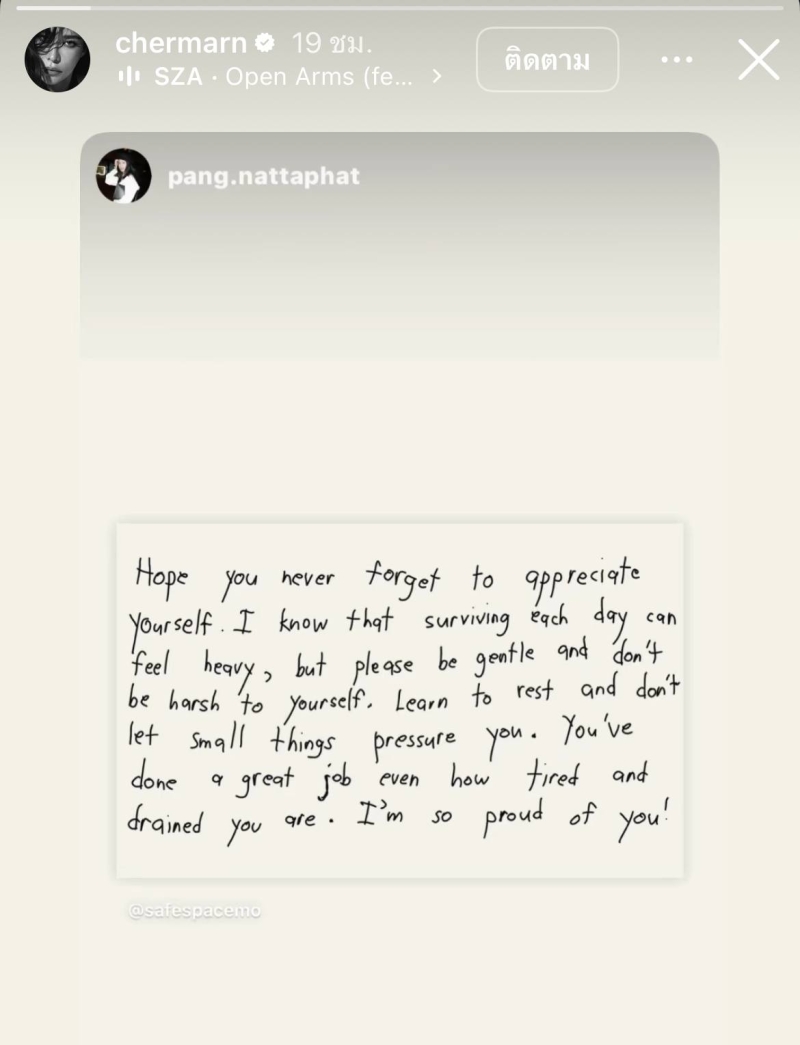 chermarn 19 ชม.
SZA · Open Arms (fe... >
ติดตาม
pang.nattaphat
Hope you never forget to appreciate
yourself. I know that surviving each day can
feel heavy, but please be gentle and don't
be harsh to yourself. Learn to rest and don't
let small things pressure you. You've
done a great job even how tired and
drained you are. I'm so proud of you!
@safespacemo